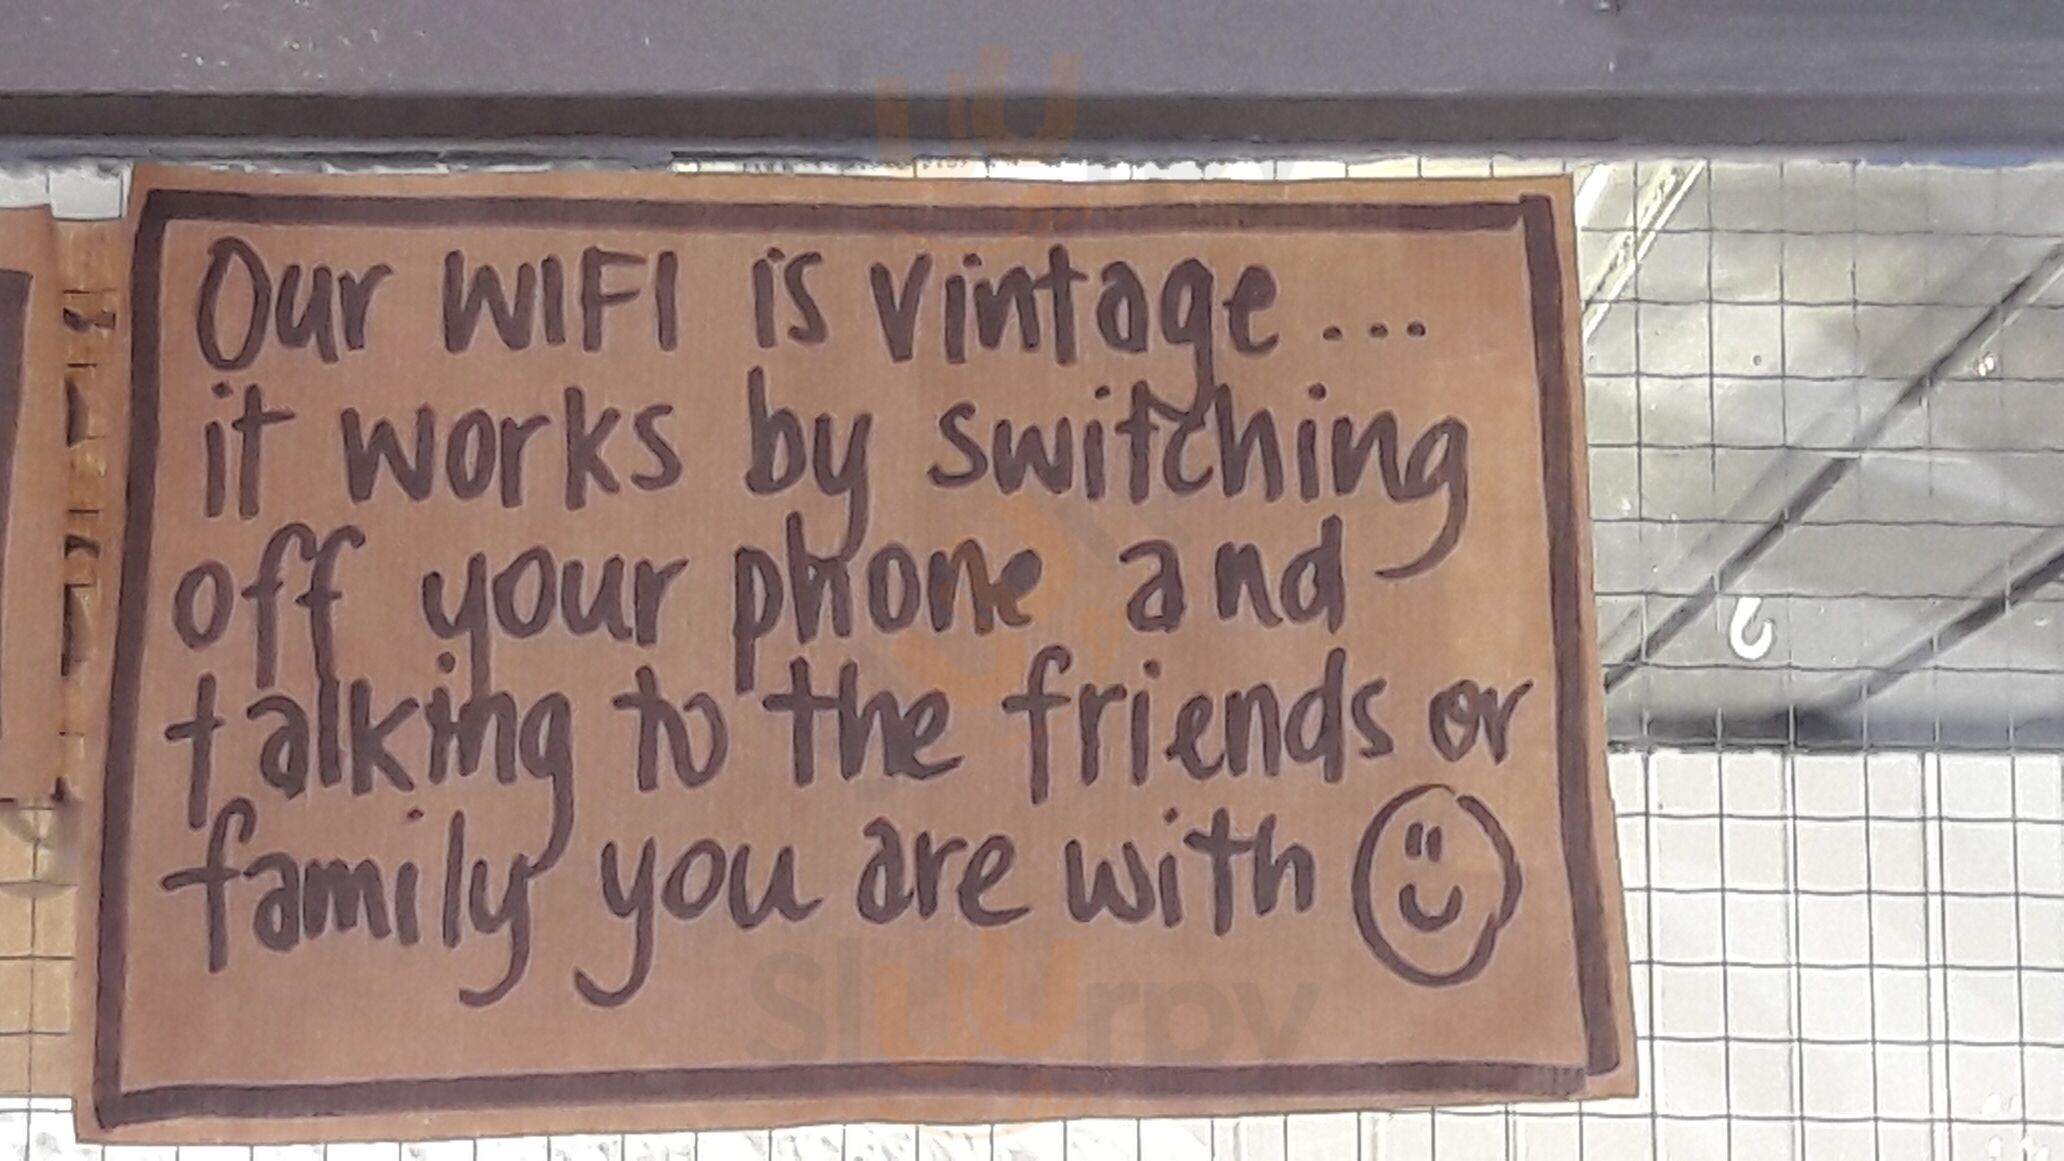 Our WIFI is vintage...
it works by switching
off your phone and
talking to the friends or
family you are with
Sluurpy